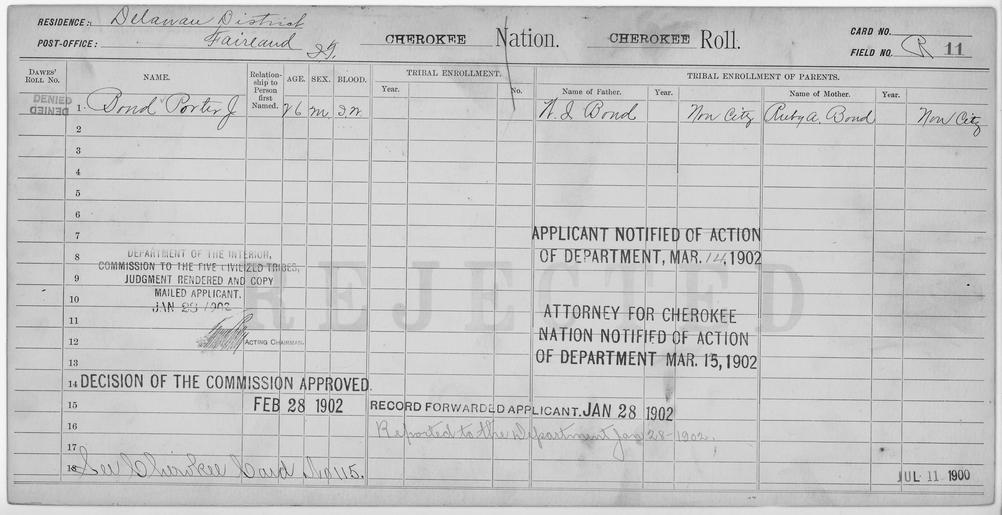 RESIDENCE: Delaware District
POST-OFFICE: Fairland I.T.
CHEROKEE Nation.
CHEROKEE Roll.
CARD NO.
FIELD NO. R 11
DAWES' ROLL NO.
NAME.
Relationship to Person first Named.
AGE.
SEX.
BLOOD.
TRIBAL ENROLLMENT.
Year.
No.
TRIBAL ENROLLMENT OF PARENTS.
Name of Father.
Year.
Name of Mother.
Year.
DENIED
DENIED
1 Bond Porter J 26 M. I.W. Bond Non Citz Ruby A. Bond Non Citz
2
3
4
5
6
7
APPLICANT NOTIFIED OF ACTION
OF DEPARTMENT, MAR. 14, 1902
8
DEPARTMENT OF THE INTERIOR,
COMMISSION TO THE FIVE CIVILIZED TRIBES,
9
JUDGMENT RENDERED AND COPY
MAILED APPLICANT.
10
JAN 28 1902
REJECTED
ATTORNEY FOR CHEROKEE
NATION NOTIFIED OF ACTION
OF DEPARTMENT MAR. 15, 1902
11
12
ACTING CHAIRMAN.
13
14 DECISION OF THE COMMISSION APPROVED.
FEB 28 1902
15
RECORD FORWARDED APPLICANT. JAN 28 1902
16
Reported to the Department Jan 28-1902.
17
18 See Cherokee Card No 115.
JUL 11 1900